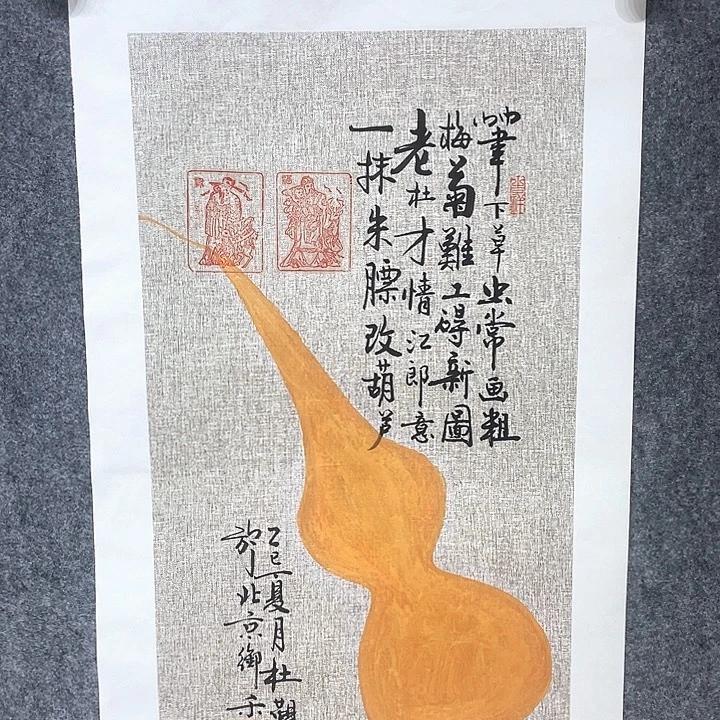 筆下草虫常画粗
梅菊難工碍新圖
老杜才情江郎意
一抹朱膘改葫芦
乙巳夏月杜
於北京御禾